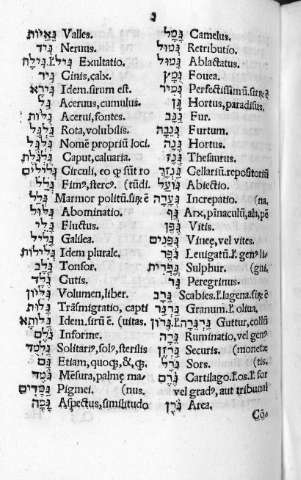 גֵּאָיוֹת Valles.
גִּיד Neruus.
גִּיל .f. גִּילַת Exultatio.
גִּיר Cinis, calx.
גִּירָא Idem. sirum est.
גַּל Aceruus, cumulus.
גַּלּוֹת Acerui, fontes.
גַּלְגַּל Rota, volubilis.
גִּלְגָּל Nomē propriū loci.
גֻּלְגֹּלֶת Caput, caluaria.
גְּלִילִים Circuli, eo ꝙ sūt ro
גָּלָל Fimꝰ, stercꝰ. (tūdi.
גְּלָל Marmor politū. sirū ē
גִּלּוּל Abominatio.
גַּלִּי Fluctus.
גָּלִיל Galilea.
גְּלִילוֹת Idem plurale.
גַּלָּב Tonsor.
גֶּלֶד Cutis.
גִּלָּיוֹן Volumen, liber.
גָּלוּת Trāsmigratio, capti
גָּלוּתָא Idem. sirū ē. (uitas.
גֹּלֶם Informe.
גַּלְמוּד Solitariꝰ, solꝰ, sterilis
גַּם Etiam, quoq;, &, q;.
גֹּמֶד Mēsura, palmę ma-
גַּמָּדִים Pigmei. (nus.
Aspectus, similitudo
גָּמָל Camelus.
גְּמוּל Retributio.
גָּמוּל Ablactatus.
גֻּמָּץ Fouea.
גָּמִיר Perfectissimū. sirū ē
גַּן Hortus, paradisus.
גַּנָּב Fur.
Furtum.
גַּנָּה Hortus.
גְּנַז Thesaurus.
Cellariū. repositoriū
Abiectio.
גְּעָרָה Increpatio. (na,
גַּף Arx, pinaculū, ala, pē
גֶּפֶן Vitis.
גְּפָנִים Vineę, vel vites.
גֹּפֶר Leuigatū. l. genꝰ li-
גָּפְרִית Sulphur. (gni,
גֵּר Peregrinus.
גָּרָב Scabies. l. lagena. sirū ē
Granum. l. oliua.
גָּרוֹן .f. Guttur, collū
גֵּרָה Ruminatio, vel genꝰ
גַּרְזֶן Securis. (monetæ
Sors. (tis.
גֶּרֶם Cartilago. l. os. l. for
vel gradꝰ, aut tribunal
גֹּרֶן Area.